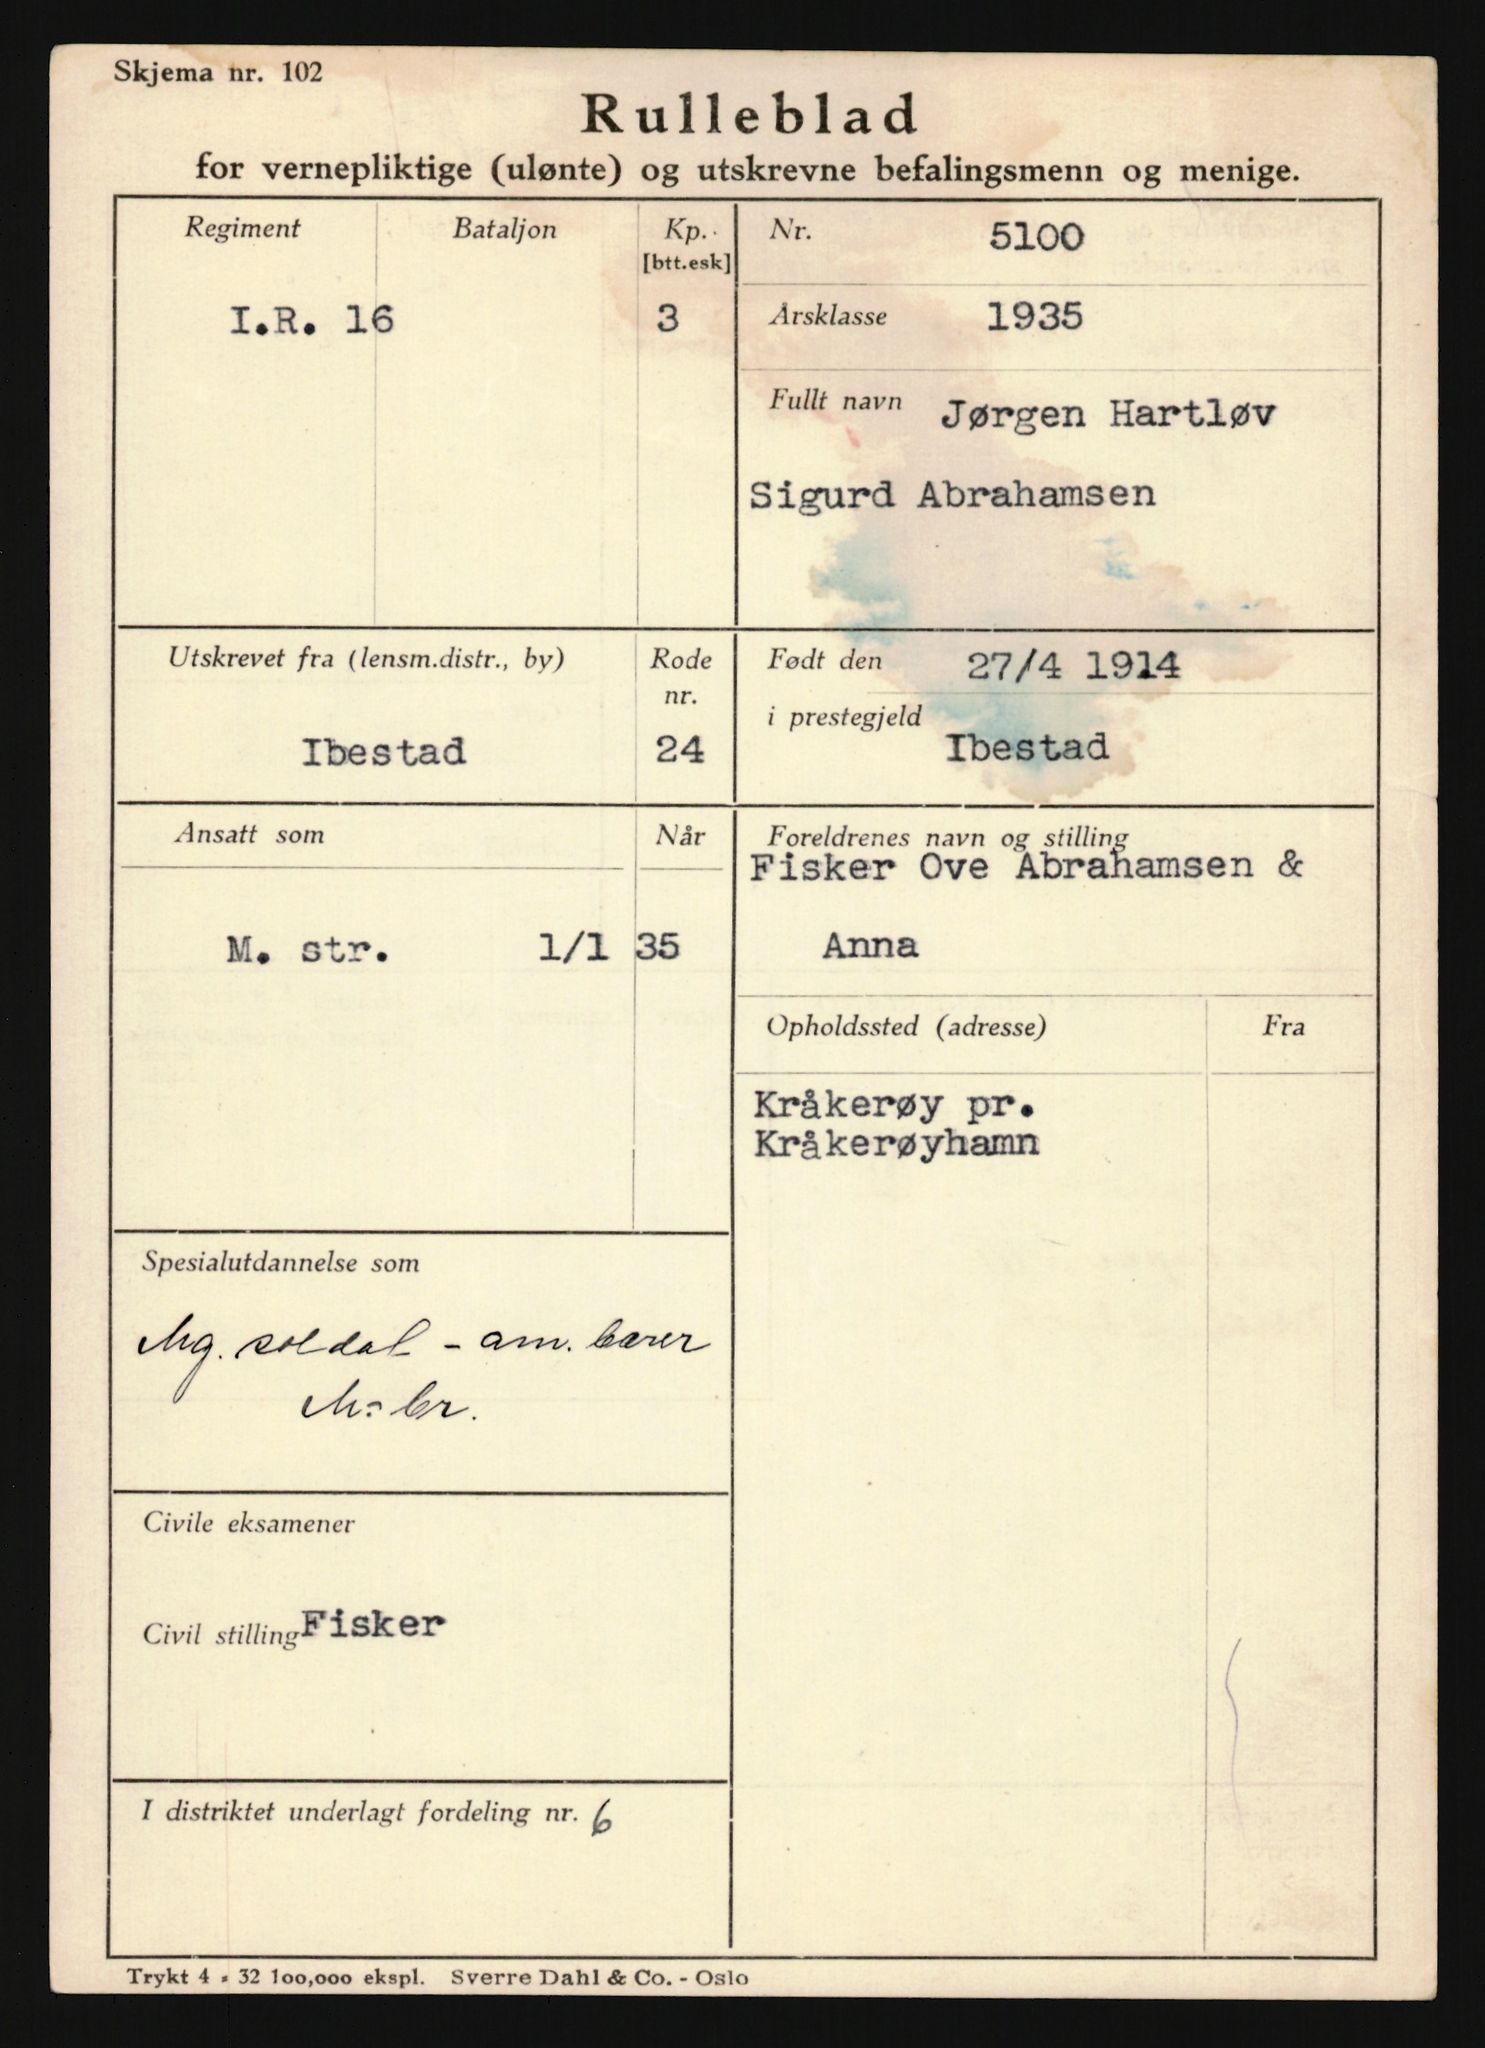 Skjema nr. 102
Rulleblad
for vernepliktige (ulønte) og utskrevne befalingsmenn og menige.
Regiment
Bataljon
Kp.
[btt.esk]
I.R. 16
3
Nr. 5100
Årsklasse 1935
Fullt navn Jørgen Hartløv
Sigurd Abrahamsen
Utskrevet fra (lensm.distr., by)
Rode
nr.
Ibestad
24
Født den 27/4 1914
i prestegjeld
Ibestad
Ansatt som
Når
M. str. 1/1 35
Foreldrenes navn og stilling
Fisker Ove Abrahamsen &
Anna
Opholdssted (adresse)
Fra
Kråkerøy pr.
Kråkerøyhamn
Spesialutdannelse som
Mg. soldat - am. bærer
M: br.
Civile eksamener
Civil stilling Fisker
I distriktet underlagt fordeling nr. 6
Trykt 4 - 32 100,000 ekspl. Sverre Dahl & Co. - Oslo